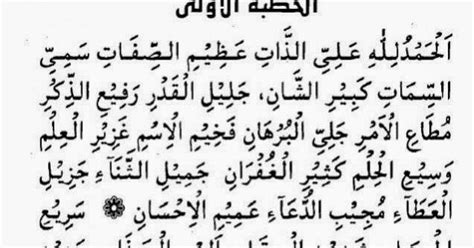 الخطبة الأولى
اَلْحَمْدُلِلّٰهِ عَلِيِّ الذَّاتِ عَظِيْمِ الصِّفَاتِ سَمِيِّ
السِّمَاتِ كَبِيْرِ الشَّانِ، جَلِيْلِ الْقَدْرِ رَفِيْعِ الذِّكْرِ
مُطَاعِ الْاَمْرِ جَلِيِّ الْبُرْهَانِ فَخِيْمِ الْاِسْمِ غَزِيْرِ الْعِلْمِ
وَسِيْعِ الْحِلْمِ كَثِيْرِ الْغُفْرَانِ جَمِيْلِ الثَّنَاءِ جَزِيْلِ
الْعَطَاءِ مُجِيْبِ الدُّعَاءِ عَمِيْمِ الْاِحْسَانِ ۞ سَرِيْعِ